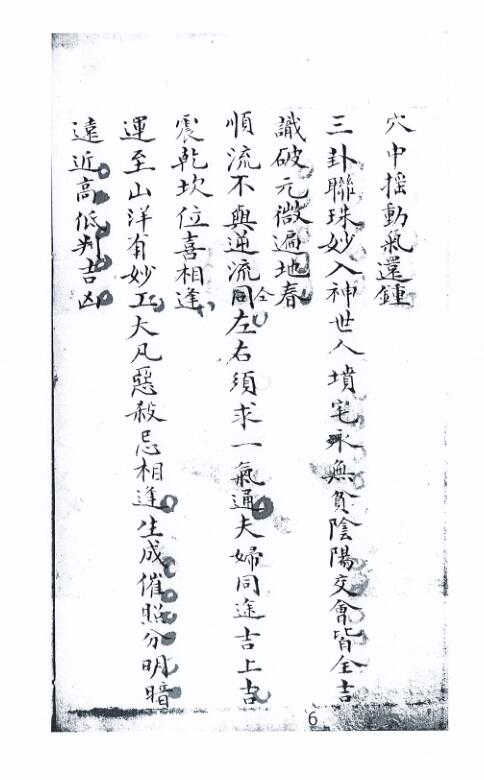 穴中搖動氣還鍾
三卦聯珠妙入神世人墳宅永無貧陰陽交會皆全吉
識破元微遍地春
順流不與逆流同左右須求一氣通夫婦同途吉上吉
全
震乾坎位喜相逢
運至山洋有妙工大凡惡殺忌相逢生成催照分明暗
遠近高低判吉凶
6